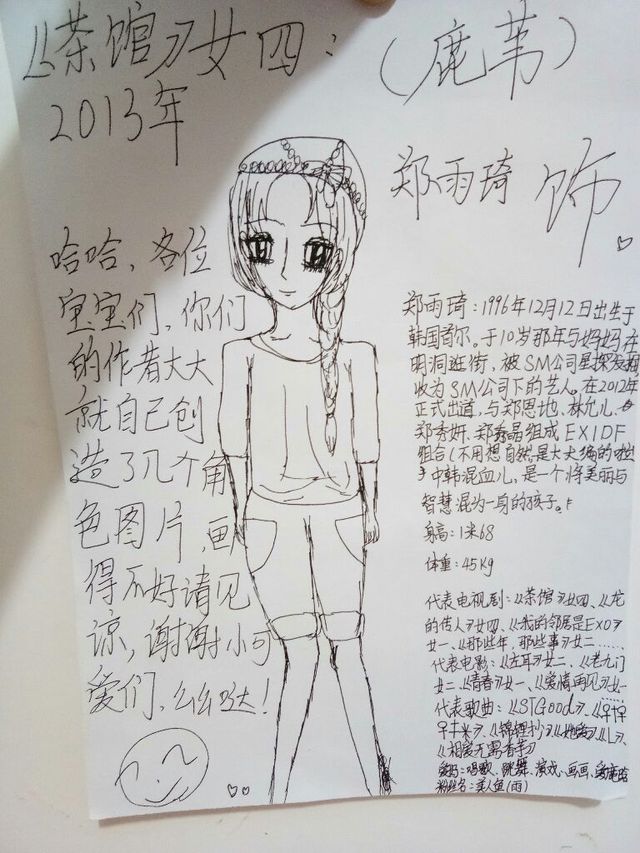 《茶馆》女四：（鹿苇）
2013年
郑雨琦 饰
哈哈，各位
宝宝们，你们
的作者大大
就自己创
造了几个角
色图片，画
得不好请见
谅，谢谢小可
爱们，么么哒！
郑雨琦：1996年12月12日出生于
韩国首尔。于10岁那年与妈妈在
明洞逛街，被SM公司星探发掘
收为SM公司下的艺人。在2012年
正式出道，与郑恩地、林允儿、
郑秀妍、郑秀晶组成EXIDF
组合（不用想自然是大大编的啦
中韩混血儿，是一个将美丽与
智慧混为一身的孩子。
身高：1米68
体重：45Kg
代表电视剧：《茶馆》女四、《龙
的传人》女四、《我的邻居是EXO》
女一、《那些年，那些事》女二……
代表电影：《左耳》女二、《老九门》
女二、《青春》女一、《爱情再见》女一
代表歌曲：《STGood》、
《锦鲤抄》、《她说》、《L》、
《相爱无需香芋》
唱歌、跳舞、演戏、画画、
粉丝名：美人鱼(雨)